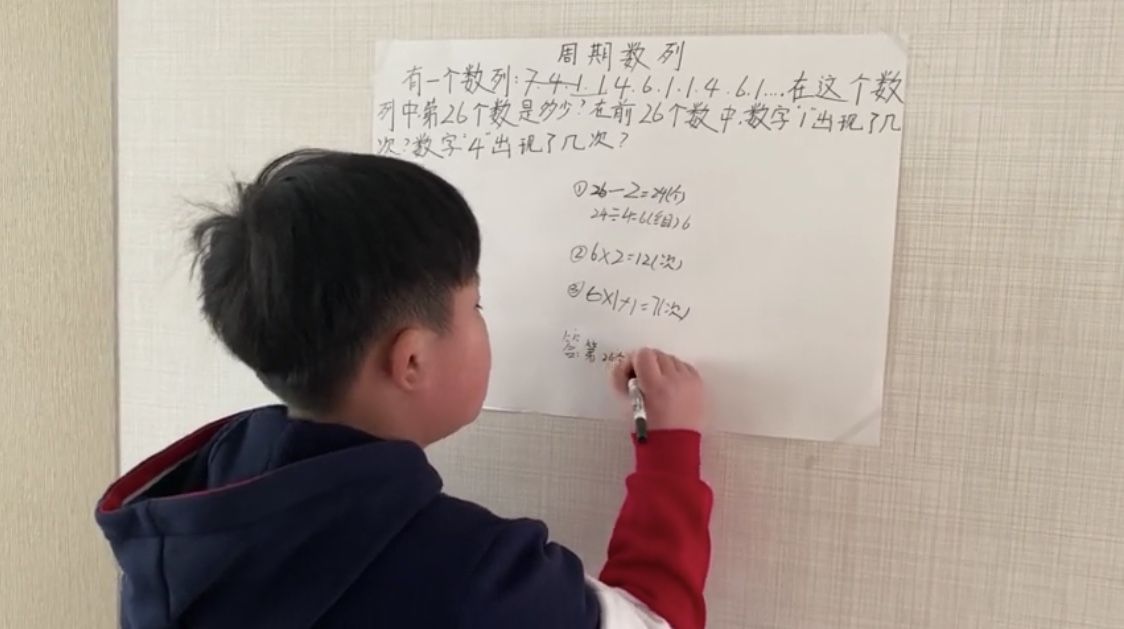 周期数列
有一个数列:7.4.1.1.4.6.1.1.4.6.1....在这个数
列中,第26个数是多少?在前26个数中,数字“1”出现了几
次?数字“4”出现了几次?
①26-2=24(个)
24÷4=6(组) 6
②6×2=12(次)
③6×1+1=7(次)
答:第26个